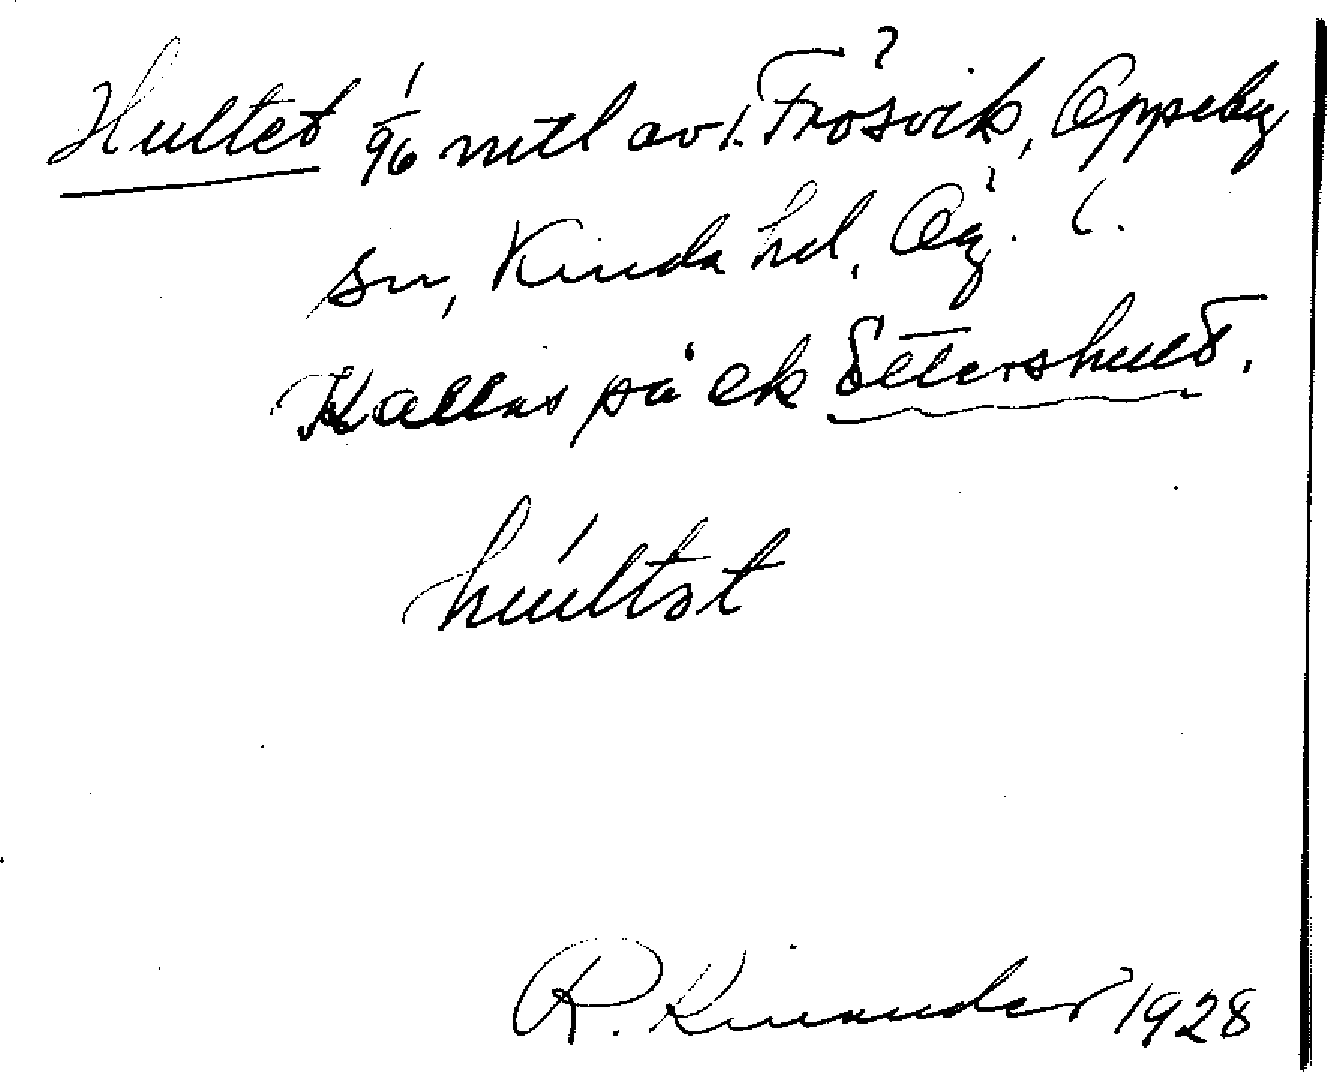 Hultet 1/96 mtl av 1. Frösvik, Oppeby
sn, Kinda hd, Ög.
Kallas på ek Ettershult.
húltət
R. Kinander 1928